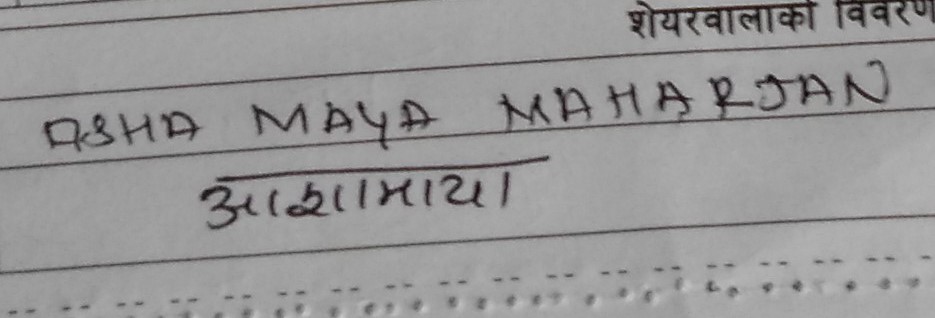 शेयरवालाको विवरण
ASHA MAYA MAHARJAN
आशामाया